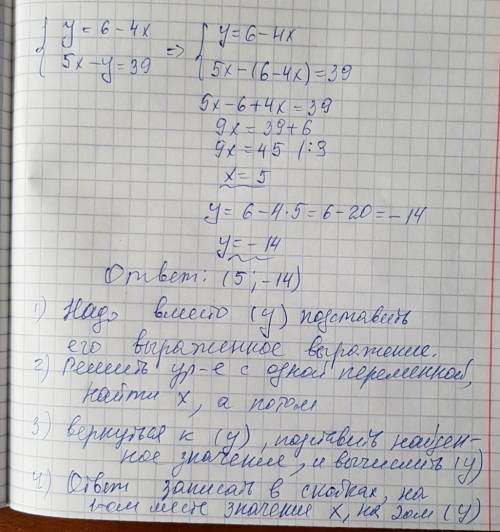 { y = 6 - 4x => { y = 6 - 4x
5x - y = 39 5x - (6 - 4x) = 39
5x - 6 + 4x = 39
9x = 39 + 6
9x = 45 /:9
x = 5
y = 6 - 4·5 = 6 - 20 = -14
y = -14
Ответ: (5; -14)
1) Надо вместо (y) подставить
его выраженное выражение.
2) Решить ур-е с одной переменной,
найти x, а потом
3) вернуться к (y), подставить найден-
ное значение, и вычислить (y)
4) Ответ записать в скобках, на
1-ом месте значение x, на 2ом (y)